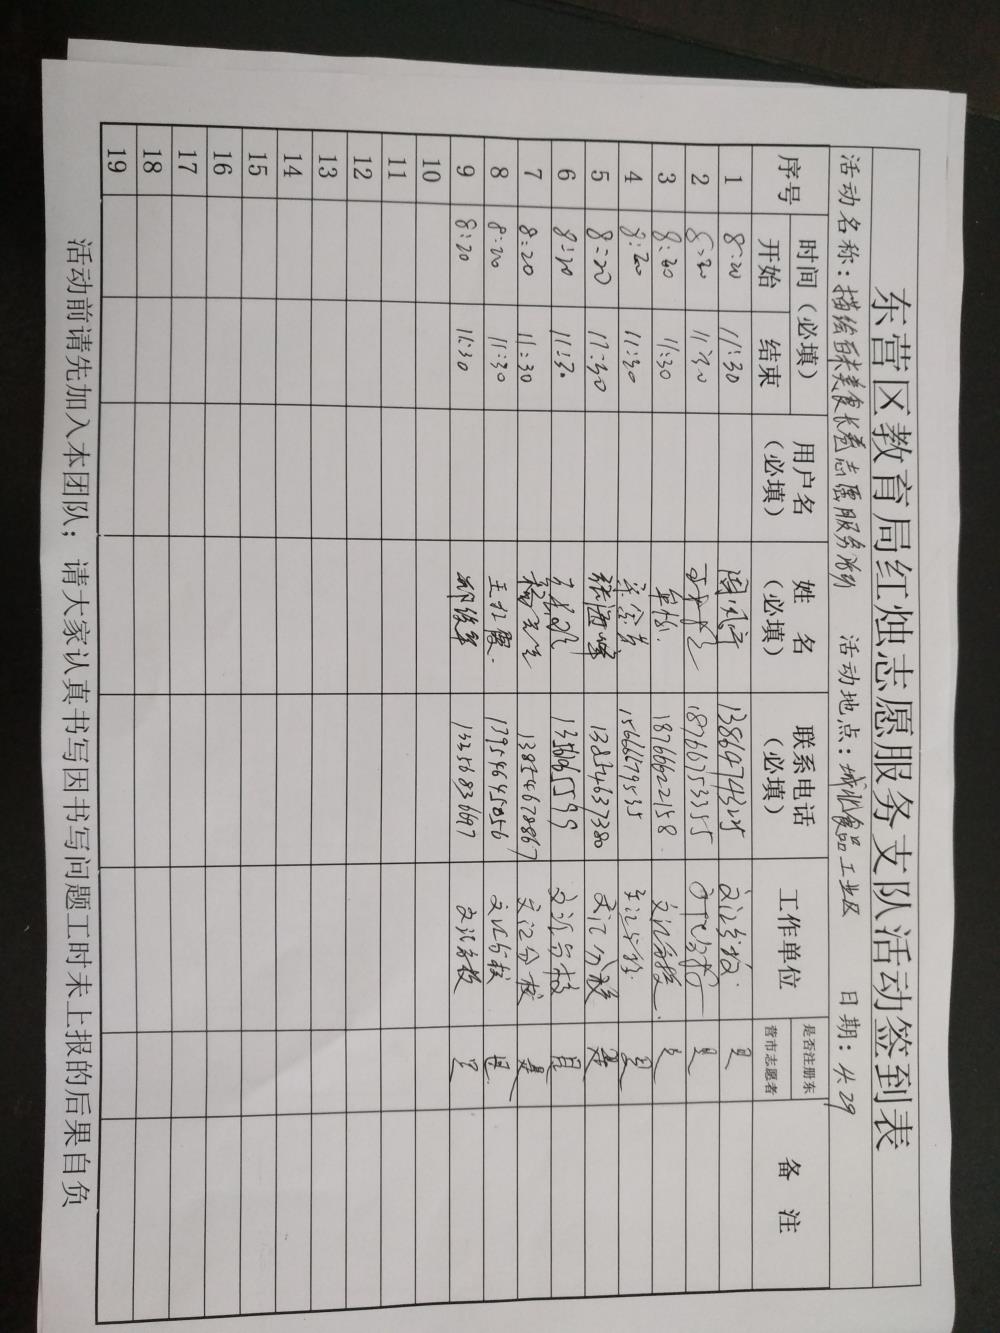 东营区教育局红烛志愿服务支队活动签到表
活动名称：描绘 美食长卷志愿服务活动 活动地点：城北食品工业区 日期：4.29
序号 时间（必填） 用户名（必填） 姓名（必填） 联系电话（必填） 工作单位 是否注册东营市志愿者 备注
开始 结束
1 8:20 11:30 1386474325 文汇分校 是
2 8:20 11:30 18766753355 是
3 8:20 11:30 18766622158 文汇分校 是
4 8:20 11:30 15666679535 文汇分校 是
5 8:20 11:30 张海峰 13854637380 文汇分校 是
6 8:20 11:30 文汇分校 是
7 8:20 11:30 13854678867 文汇分校 是
8 8:20 11:30 王红霞 13954645056 文汇分校 是
9 8:20 11:30 13256836697 文汇分校 是
10
11
12
13
14
15
16
17
18
19
活动前请先加入本团队； 请大家认真书写因书写问题工时未上报的后果自负